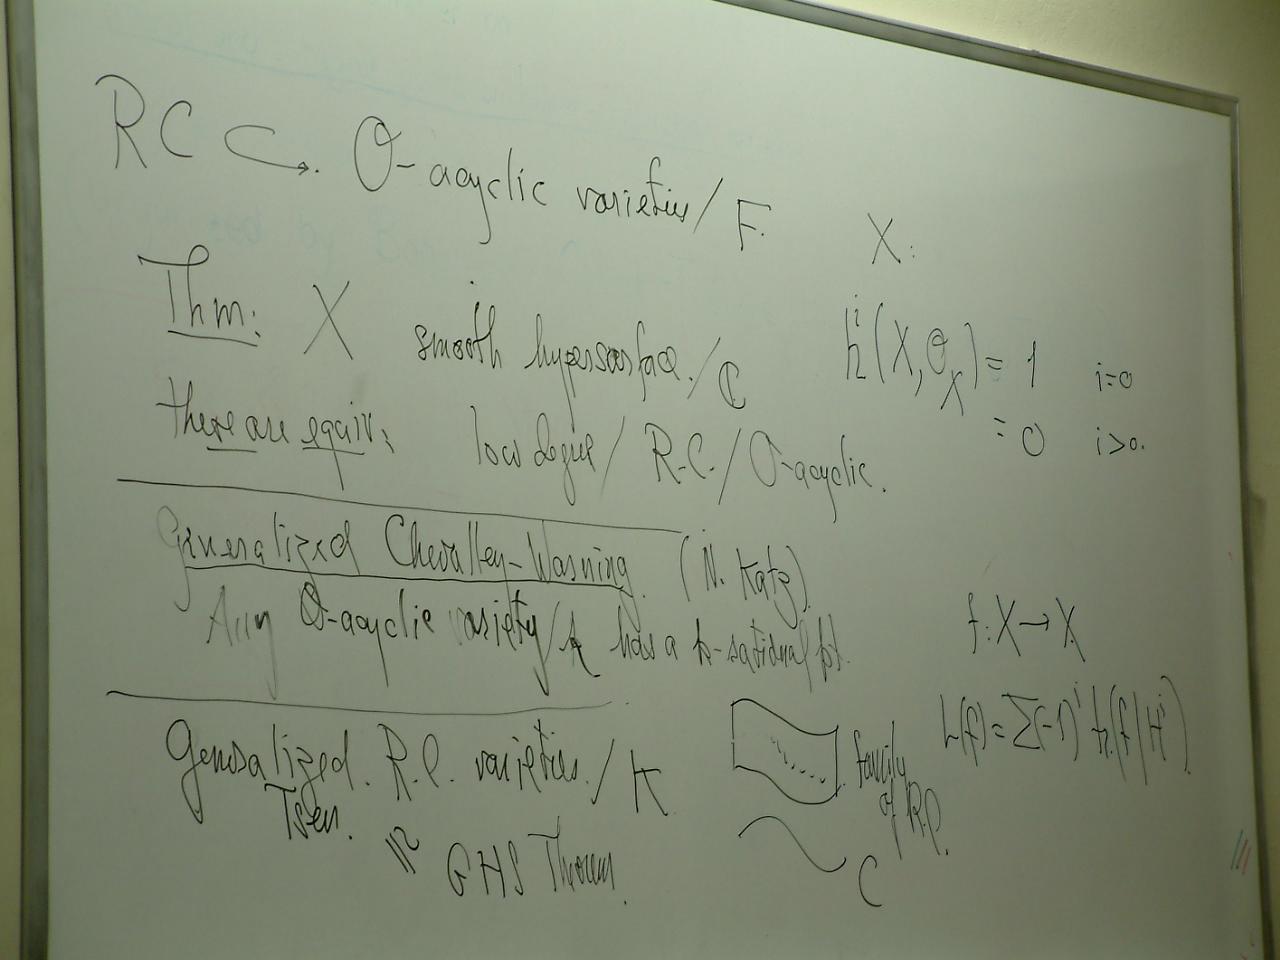 RC ↪ O-acyclic varieties / F.
X:
Thm: X smooth hypersurface / ℂ
hⁱ(X, O_X) = 1 i=0
= 0 i>0.
there are equiv: low degree / R.C. / O-acyclic.
Generalized Chevalley-Warning (N. Katz)
Any O-acyclic variety / k has a k-rational pt.
f: X → X
L(f) = Σ(-1)ⁱ tr(f | Hⁱ).
Generalized R.C. varieties / K
Tsen.
family of R.C.
GHS Theorem.
C